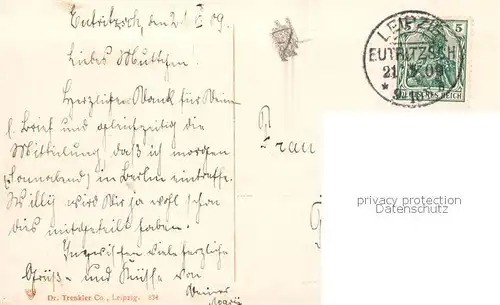 Eutritzsch, den 21. X 09.
Liebes Muttchen.
Herzlichen Dank für Deinen
l. Brief und gleichzeitig die
Mitteilung, daß ich morgen
(Sonnabend) in Berlin eintreffe.
Willy wird Dir ja wohl schon
dies mitgeteilt haben.
Inzwischen viele herzliche
Grüße und Küsse von
Deiner
Marie
Dr. Trenkler Co., Leipzig.
Frau
LEIPZIG
EUTRITZSCH
5
DEUTSCHES REICH
privacy protection
Datenschutz